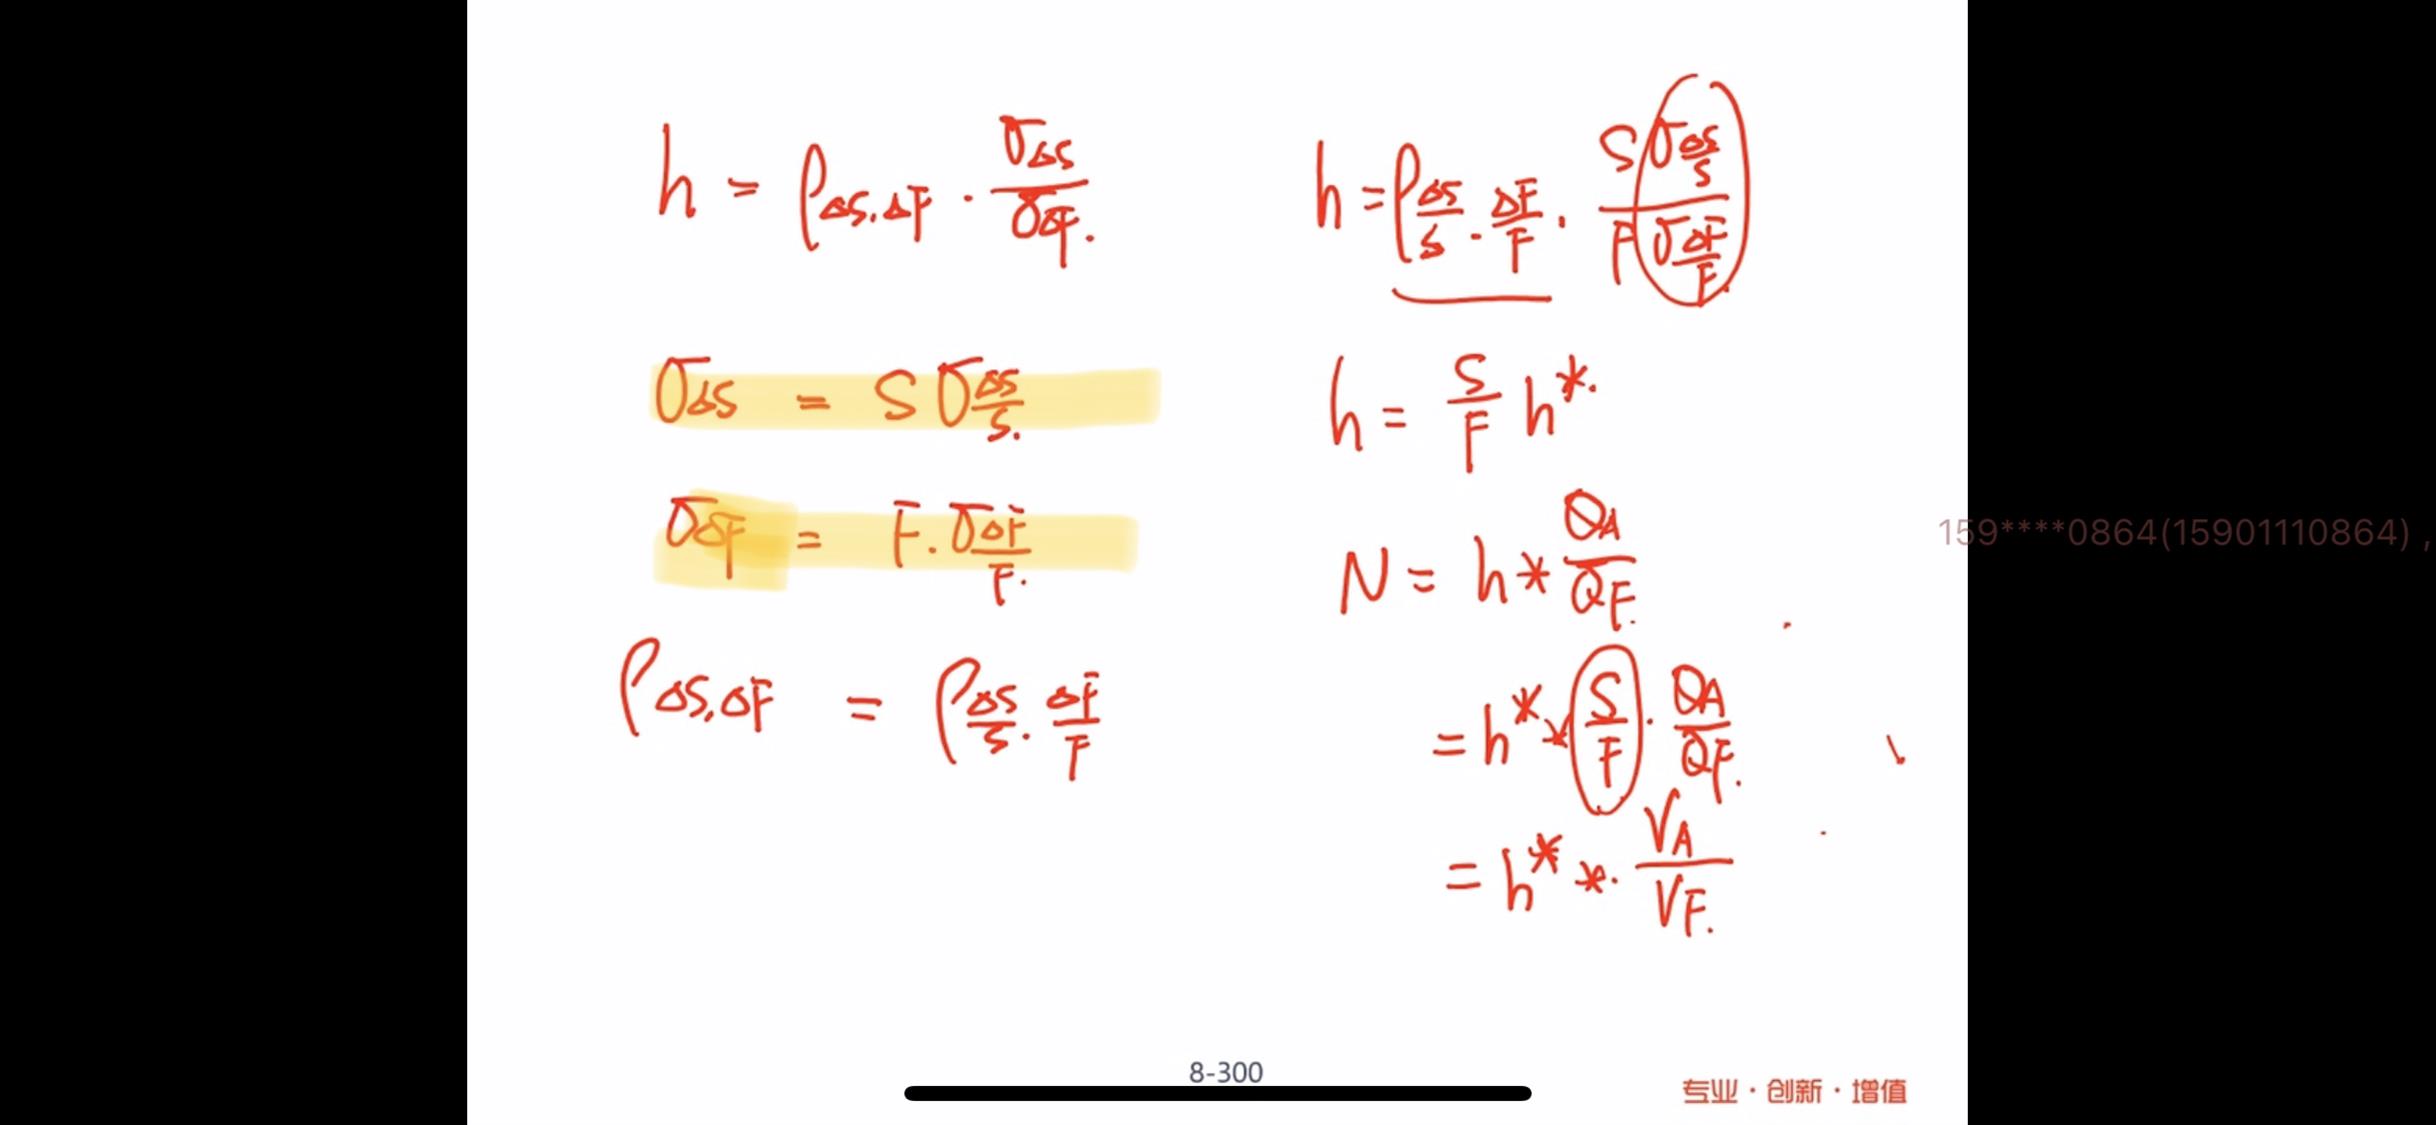 h = ρΔS.ΔF · σΔS/σΔF.
σΔS = S σΔS/S.
σΔF = F. σΔF/F.
ρΔS,ΔF = ρΔS/S. ΔF/F
h = ρΔS/S . ΔF/F · SσΔS/S / FσΔF/F.
h = S/F h*.
N = h * QA/QF.
= h* * S/F · QA/QF.
= h* *. VA/VF.
159****0864(15901110864) ,
8-300
专业·创新·增值